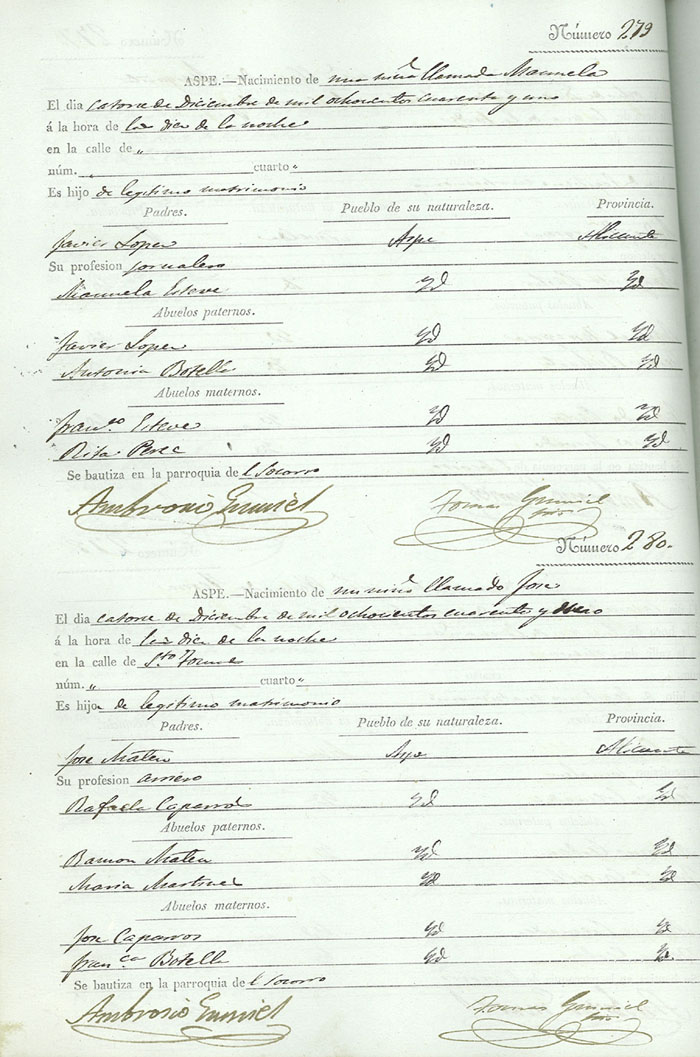 Número 279
ASPE.—Nacimiento de una niña llamada Manuela
El dia catorce de Diciembre de mil ochocientos cuarenta y uno
á la hora de las diez de la noche
en la calle de „
núm. cuarto „
Es hijo de legitimo matrimonio
Padres. Pueblo de su naturaleza. Provincia.
Javier Lopez Aspe Alicante
Su profesion jornalero
Manuela Esteve Yd Yd
Abuelos paternos.
Javier Lopez Yd Yd
Antonia Botella Yd Yd
Abuelos maternos.
Fran.co Esteve Yd Yd
Rita Perez Yd Yd
Se bautiza en la parroquia del Socorro
Ambrosio Tomas
Número 280.
ASPE.—Nacimiento de un niño llamado Jose
El dia catorce de Diciembre de mil ochocientos cuarenta y uno
á la hora de las diez de la noche
en la calle de Sto Tomas
núm. „ cuarto „
Es hijo de legitimo matrimonio
Padres. Pueblo de su naturaleza. Provincia.
Jose Mateu Aspe Alicante
Su profesion arriero
Rafaela Caparros Yd Yd
Abuelos paternos.
Ramon Mateu Yd Yd
Maria Martinez Yd Yd
Abuelos maternos.
Jose Caparros Yd Yd
Fran.ca Botella Yd Yd
Se bautiza en la parroquia del Socorro
Ambrosio Tomas